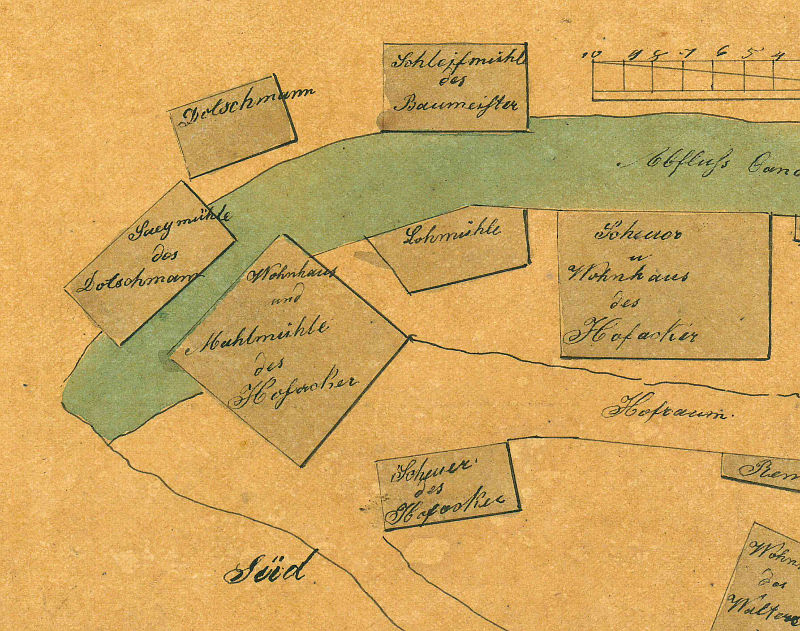 Schleifmühl
des
Baumeister
10 9 8 7 6 5 4
Dotschmann
Abfluss Cana
Saegmühle
des
Dotschmann
Lohmühle
Scheuer
u
Wohnhaus
des
Hofacker
Wohnhaus
und
Mahlmühle
des
Hofacker
Hofraum.
Scheuer
des
Hofacker
Rem
Wohn
des
Walter
Süd